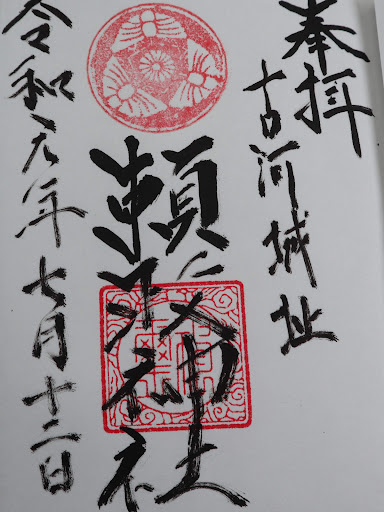 奉拝
古河城址
頼政神社
令和元年七月十二日